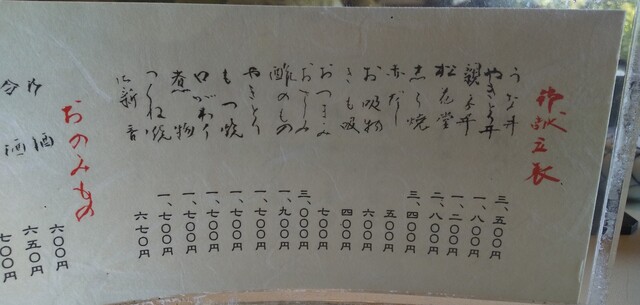 御献立表
うな丼 三、五〇〇円
やきとり丼 一、八〇〇円
親子丼 一、二〇〇円
松花堂 二、八〇〇円
志ら焼 三、四〇〇円
赤だし 五〇〇円
お吸物 六〇〇円
きも吸 四〇〇円
おつまみ 七〇〇円
おさしみ 三、〇〇〇円
酢のもの 一、九〇〇円
やきとり 一、七〇〇円
もつ焼 一、七〇〇円
口がわり 一、七〇〇円
煮物 一、七〇〇円
つくね焼 一、七〇〇円
御新香 六七〇円
おのみもの
六〇〇円
酒 六五〇円
酒 七〇〇円